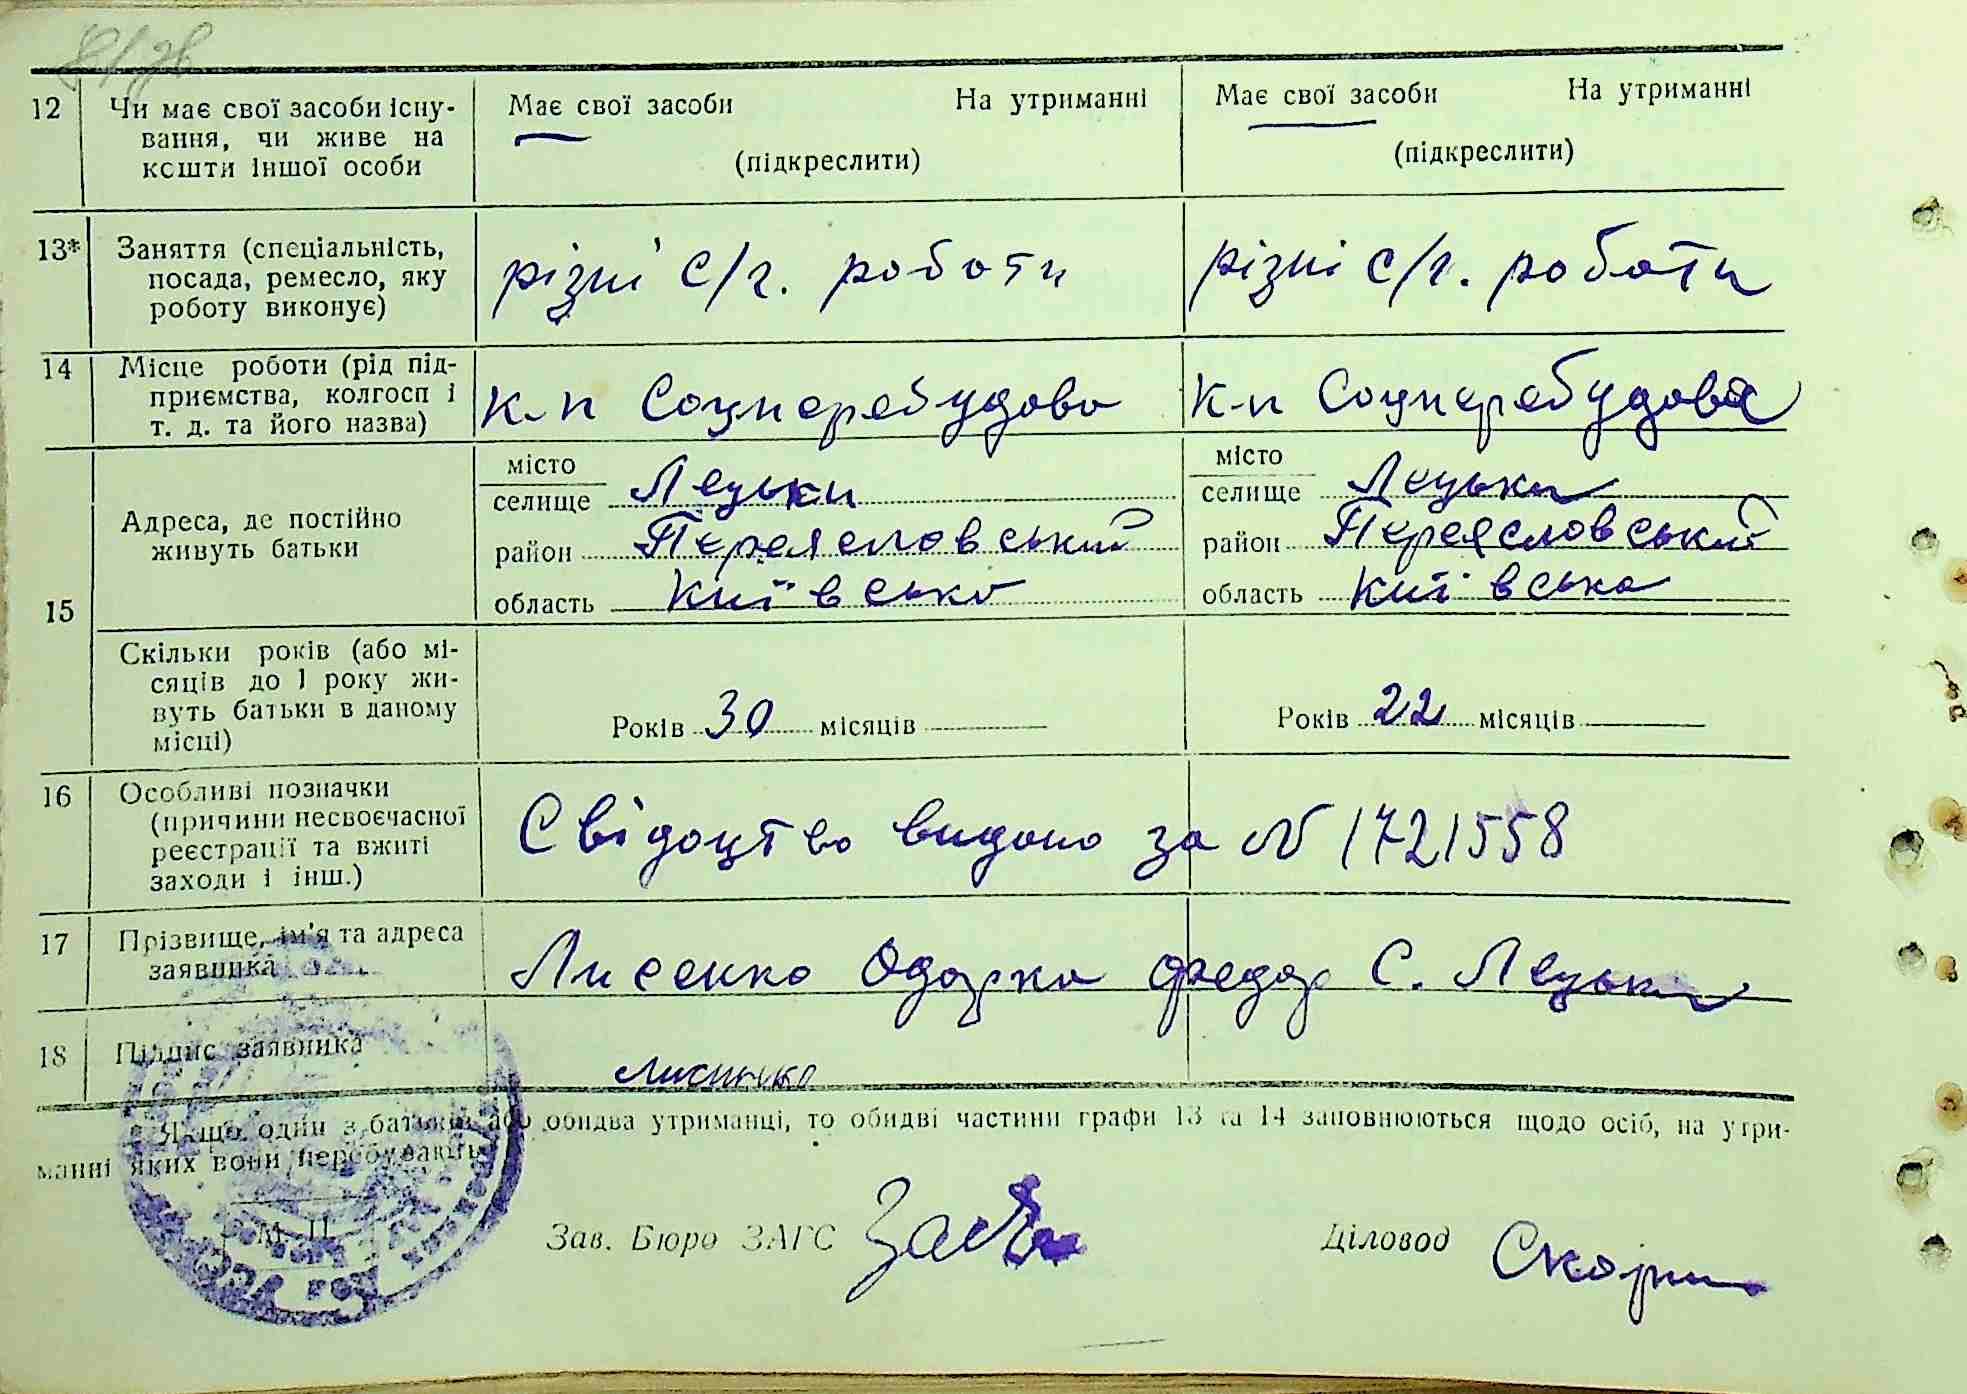 12 Чи має свої засоби існу-
вання, чи живе на
кошти іншої особи
Має свої засоби На утриманні
(підкреслити)
Має свої засоби На утриманні
(підкреслити)
13* Заняття (спеціальність,
посада, ремесло, яку
роботу виконує)
різні с/г. роботи
різні с/г. роботи
14 Місце роботи (рід під-
приємства, колгосп і
т. д. та його назва)
к-п Соцперебудова
к-п Соцперебудова
15 Адреса, де постійно
живуть батьки
місто
селище Лецьки
район Переяславський
область Київська
місто
селище Лецьки
район Переяславський
область Київська
Скільки років (або мі-
сяців до 1 року жи-
вуть батьки в даному
місці)
Років 30 місяців
Років 22 місяців
16 Особливі позначки
(причини несвоєчасної
реєстрації та вжиті
заходи і інш.)
Свідоцтво видано за № 1721558
17 Прізвище, ім'я та адреса
заявника
Лисенко Одарка Федор с. Лецьки
18 Підпис заявника
* Якщо один з батьків або обидва утриманці, то обидві частини графи 13 та 14 заповнюються щодо осіб, на утри-
манні яких вони перебувають
М. П.
Зав. Бюро ЗАГС
Діловод